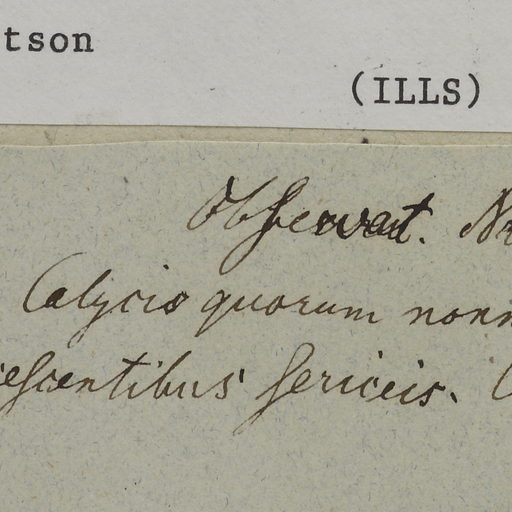 tson
(ILLS)
Observat.
Calycis quorum
escentibus sericeis.